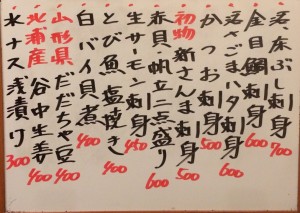 活、水ぶし刺身 700
金目鯛刺身 600
活さごまハタ刺身 600
かつお刺身 500
初物新さんま刺身 500
赤貝・帆立二点盛り 600
生サーモン刺身 450
とび魚塩焼き 400
白バイ貝煮 400
山形県だだちゃ豆 400
北浦産谷中生姜 400
水ナス浅漬り 300